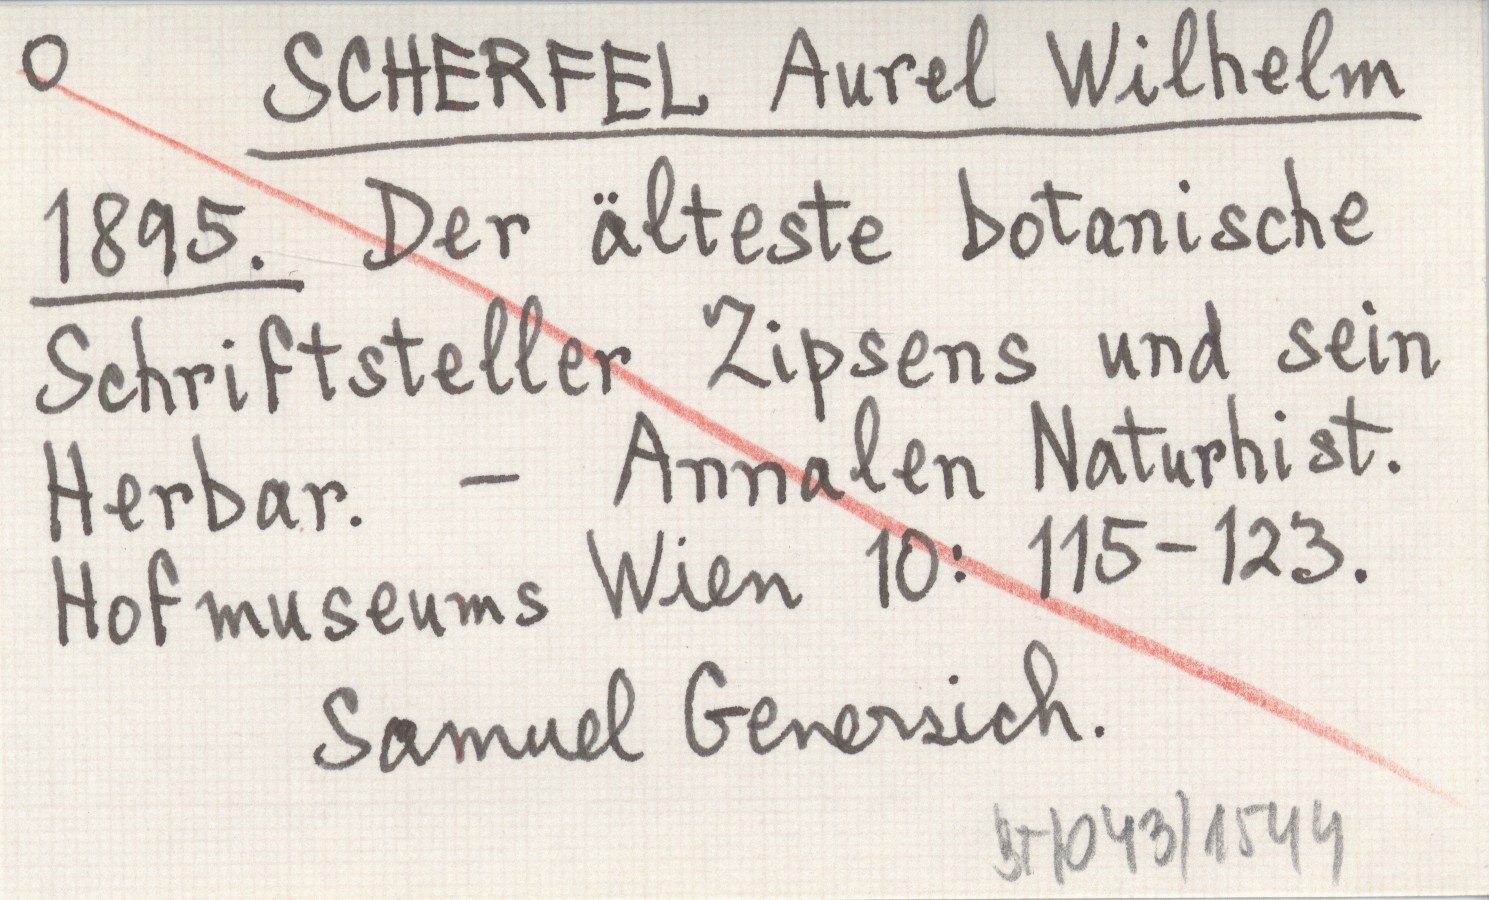 O SCHERFEL Aurel Wilhelm
1895. Der älteste botanische
Schriftsteller Zipsens und sein
Herbar. – Annalen Naturhist.
Hofmuseums Wien 10: 115–123.
Samuel Genersich.
BT/043/1544